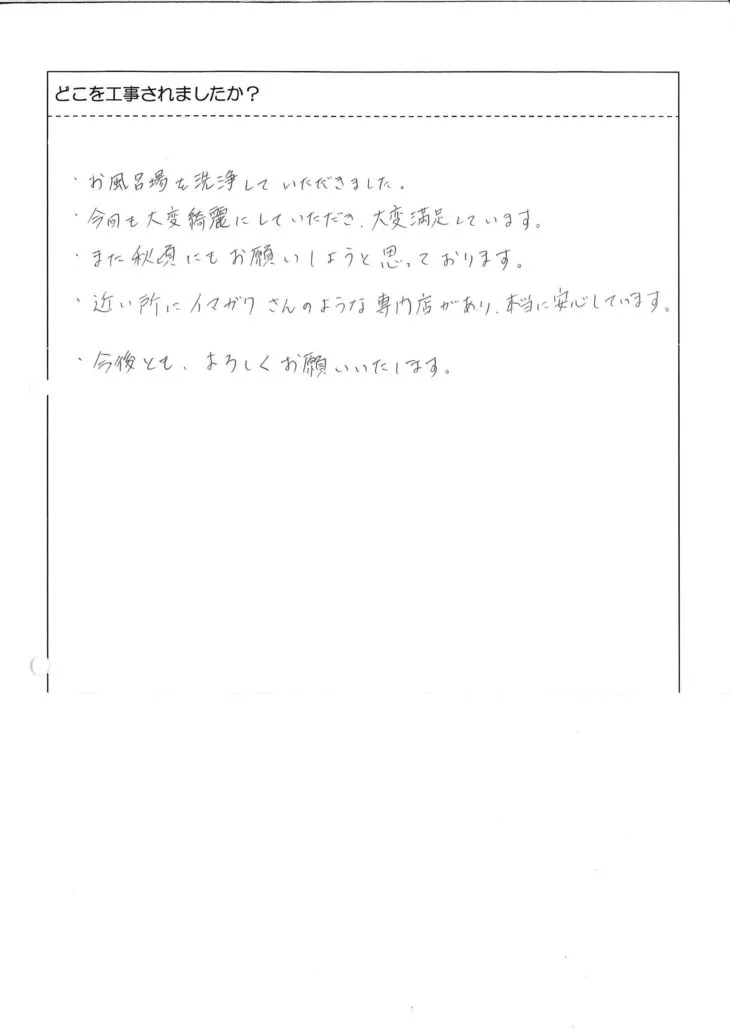 どこを工事されましたか？
・お風呂場を洗浄していただきました。
・今回も大変綺麗にしていただき、大変満足しています。
・また秋頃にもお願いしようと思っております。
・近い所にイマガワさんのような専門店があり、本当に安心しています。
・今後とも、よろしくお願いいたします。